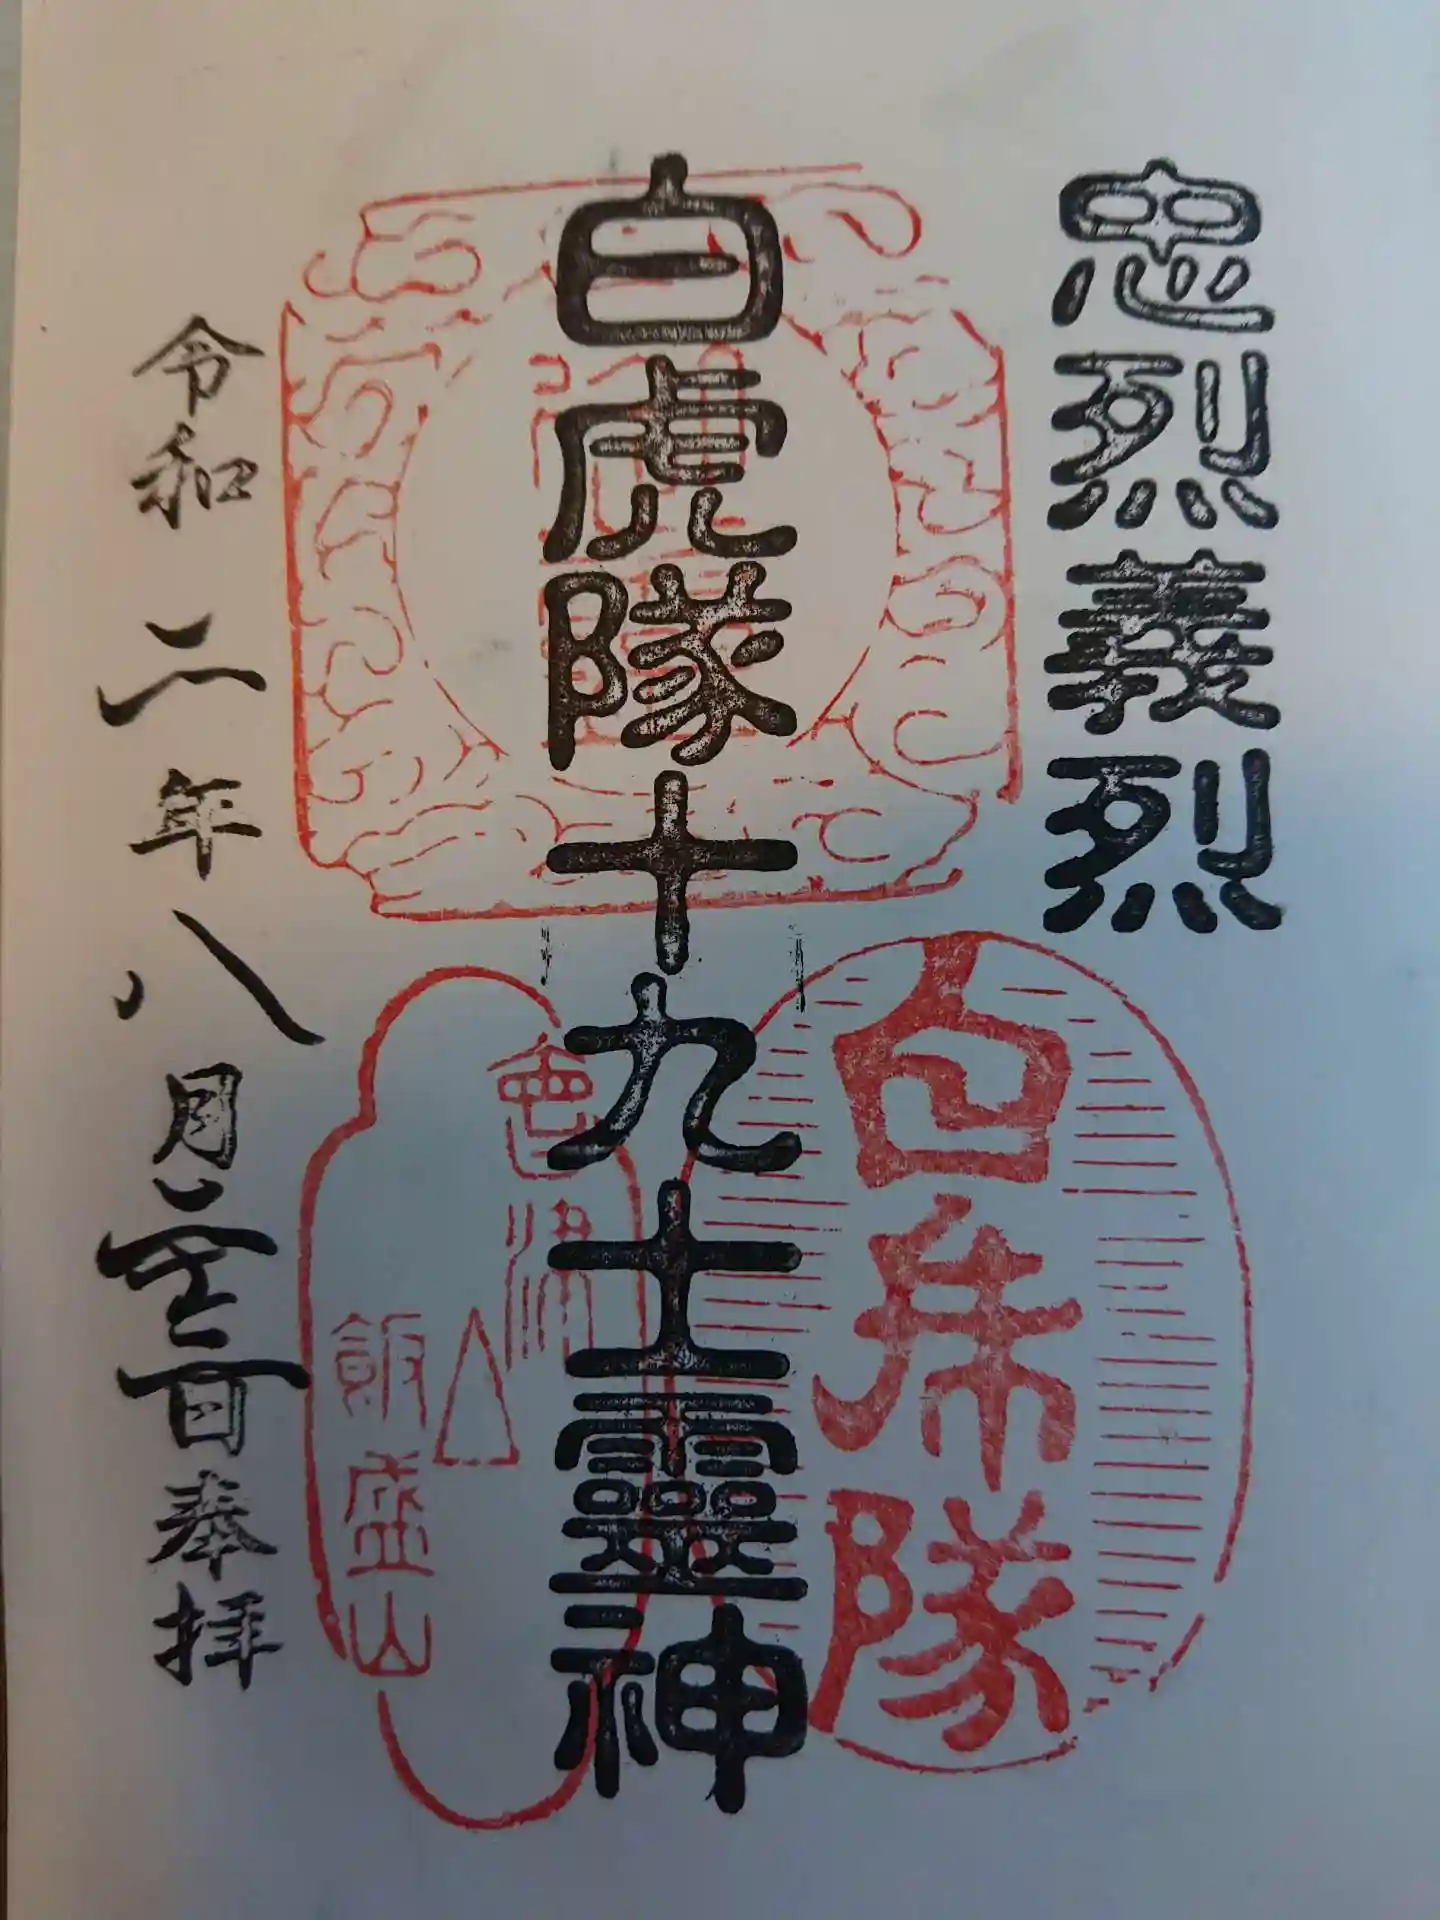 忠烈義烈
白虎隊十九士靈神
白虎隊
會津
飯盛山
令和二年八月二十二日奉拝